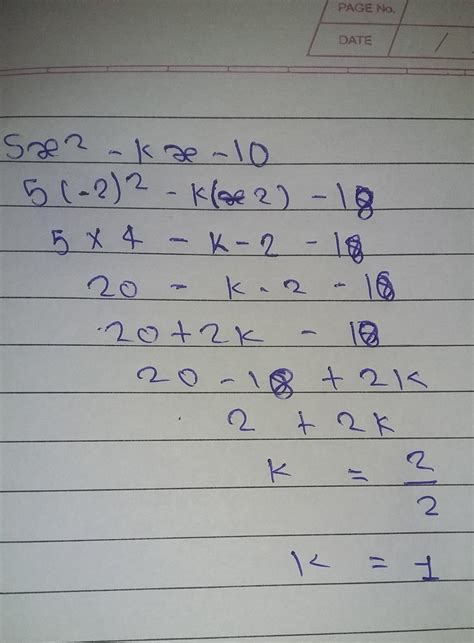 PAGE No.
DATE / /
5x² - kx - 10
5(-2)² - k(2) - 18
5 × 4 - k - 2 - 18
20 - k - 2 - 18
20 + 2k - 18
20 - 18 + 2k
2 + 2k
k = 2/2
k = 1